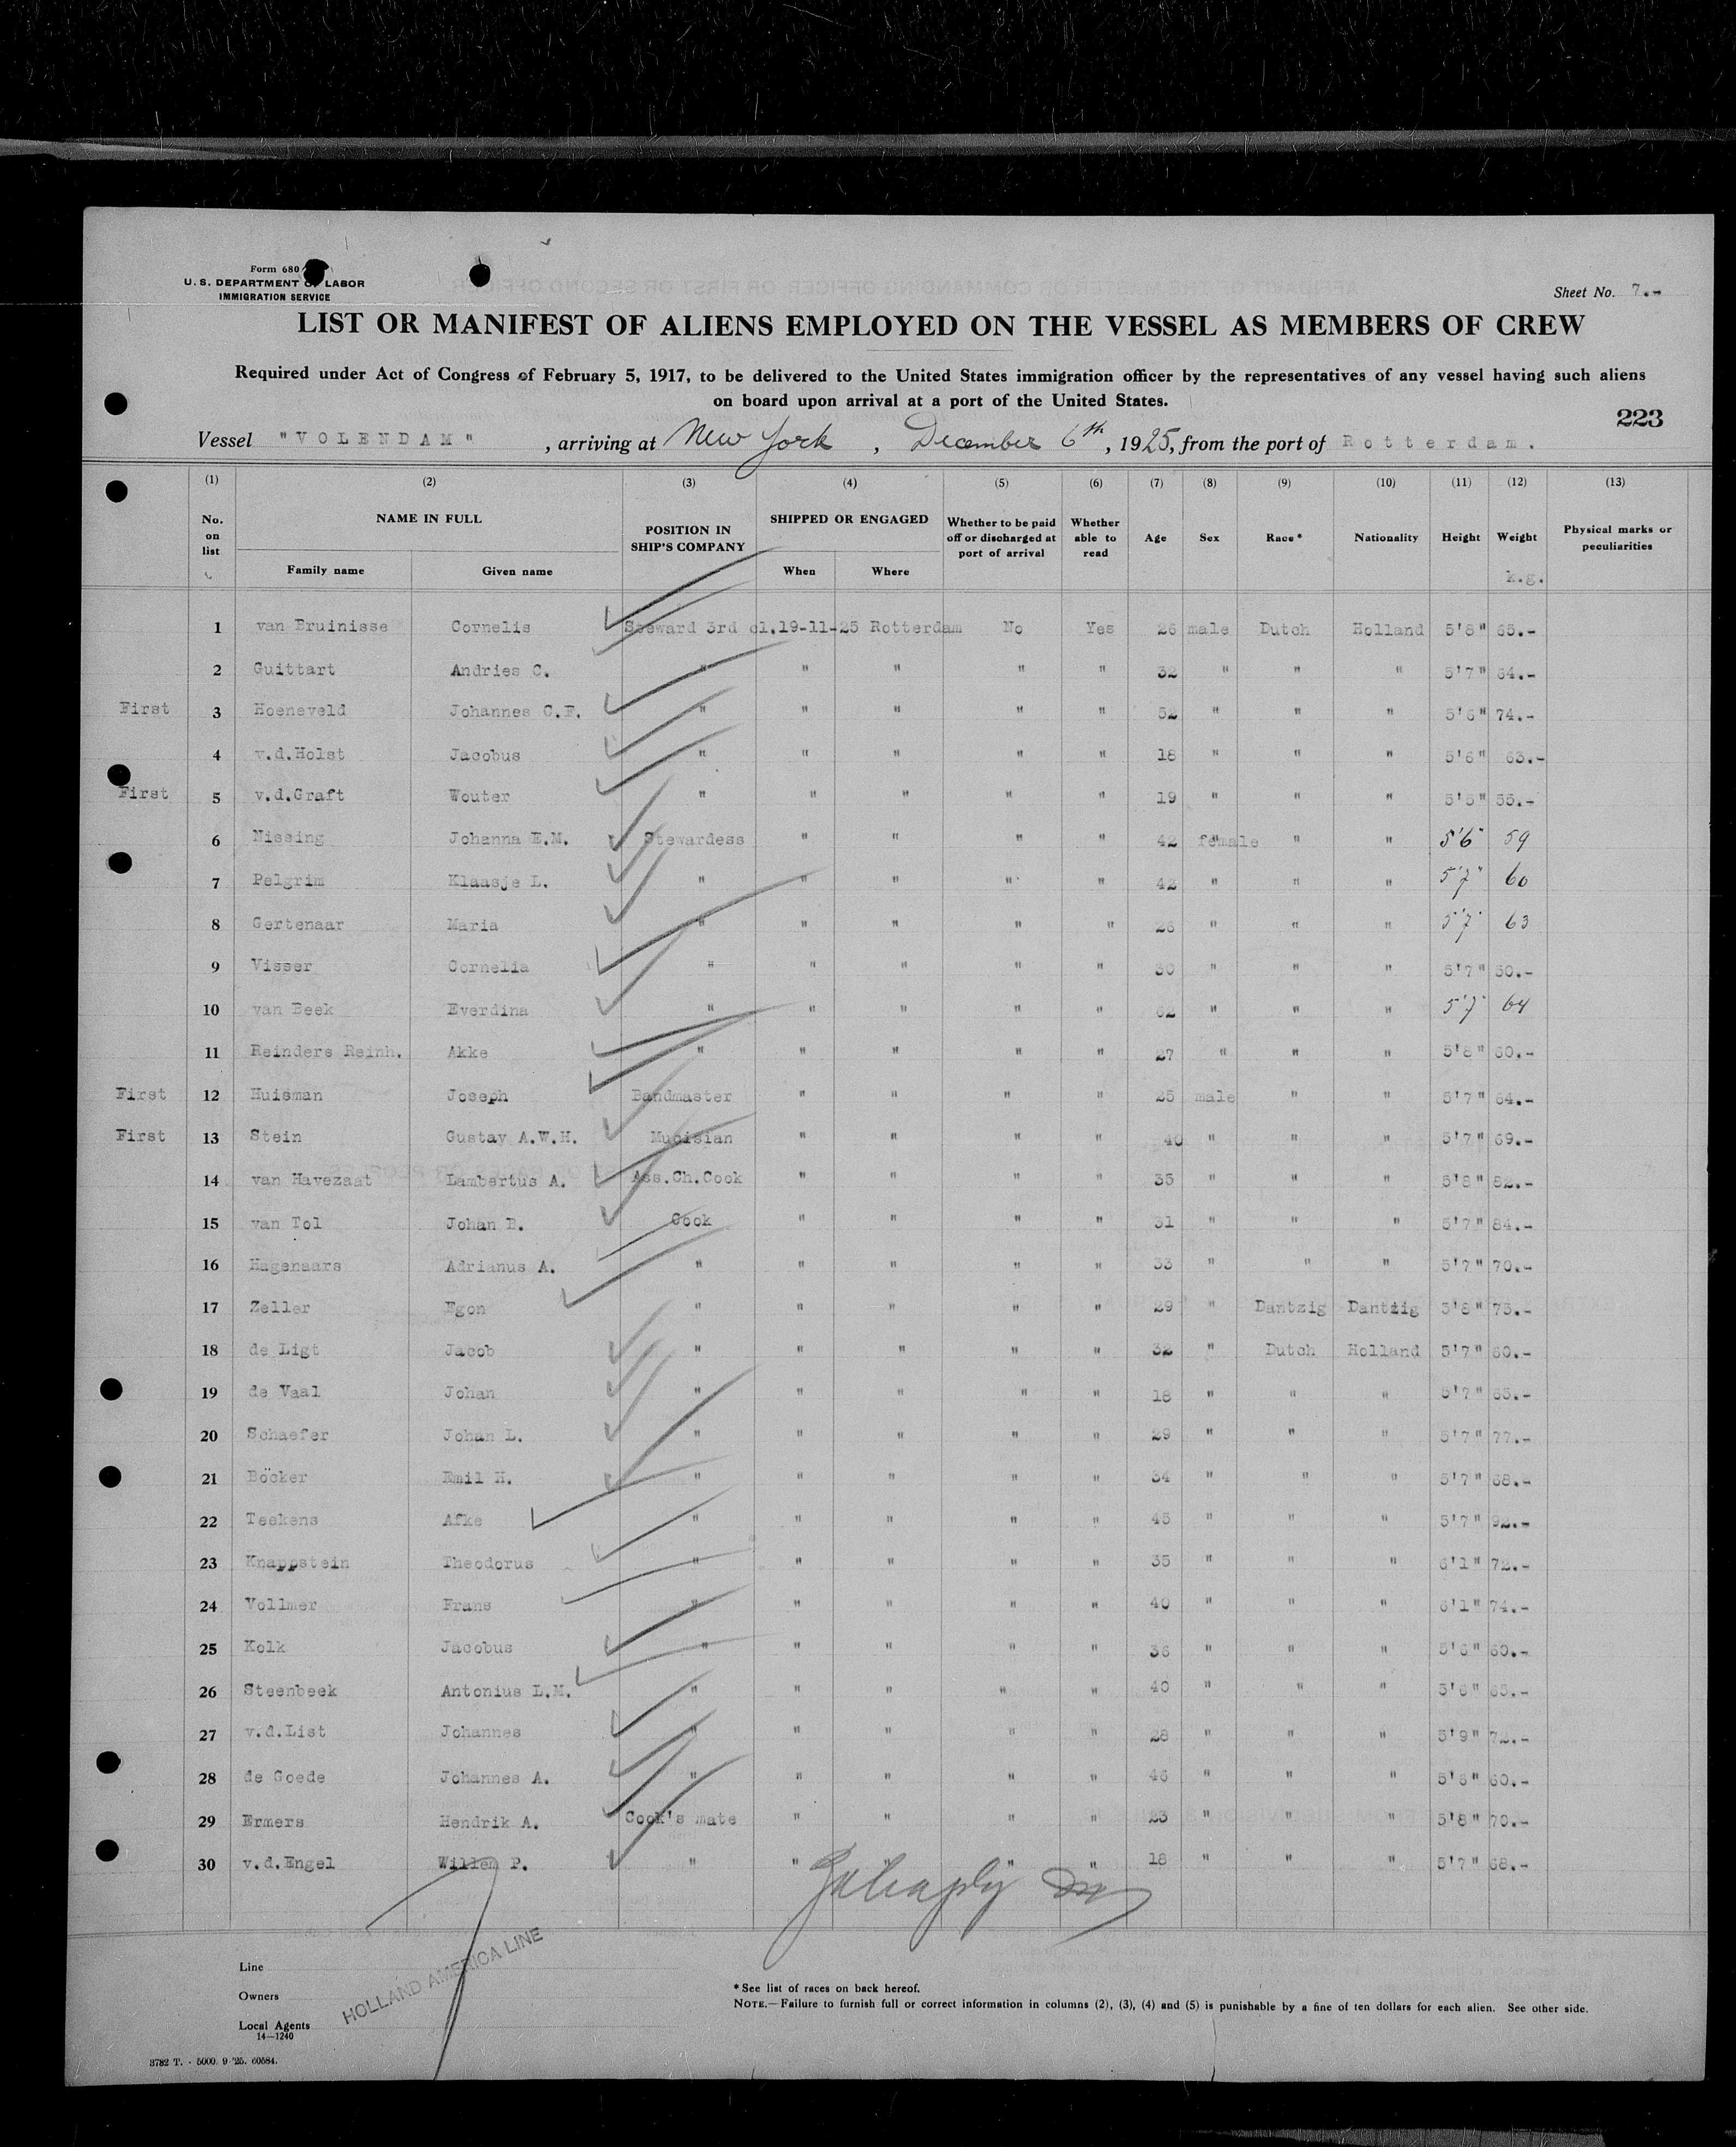 Form 680
U. S. DEPARTMENT OF LABOR
IMMIGRATION SERVICE
Sheet No. 7.-
LIST OR MANIFEST OF ALIENS EMPLOYED ON THE VESSEL AS MEMBERS OF CREW
Required under Act of Congress of February 5, 1917, to be delivered to the United States immigration officer by the representatives of any vessel having such aliens
on board upon arrival at a port of the United States.
223
Vessel "VOLENDAM" , arriving at New York , December 6th , 1925, from the port of Rotterdam.
(1) (2) (3) (4) (5) (6) (7) (8) (9) (10) (11) (12) (13)
No. on list NAME IN FULL Family name Given name POSITION IN SHIP'S COMPANY SHIPPED OR ENGAGED When Where Whether to be paid off or discharged at port of arrival Whether able to read Age Sex Race* Nationality Height Weight Physical marks or peculiarities
k.g.
1 van Bruinisse Cornelis Steward 3rd cl. 19-11-25 Rotterdam No Yes 26 male Dutch Holland 5'8" 65.-
2 Guittart Andries C. " " " " " 32 " " " 5'7" 64.-
First 3 Hoeneveld Johannes C.F. " " " " " 52 " " " 5'6" 74.-
4 v.d.Holst Jacobus " " " " " 18 " " " 5'6" 63.-
First 5 v.d.Graft Wouter " " " " " 19 " " " 5'5" 55.-
6 Nissing Johanna E.M. Stewardess " " " " 42 female " " 5'6" 59
7 Pelgrim Klaasje L. " " " " " 42 " " " 5'7" 60
8 Gertenaar Maria " " " " " 26 " " " 5'7" 63
9 Visser Cornelia " " " " " 30 " " " 5'7" 50.-
10 van Beek Everdina " " " " " " " " 5'7" 64
11 Reinders Reinh. Akke " " " " " 27 " " " 5'8" 60.-
First 12 Huisman Joseph Bandmaster " " " " 25 male " " 5'7" 64.-
First 13 Stein Gustav A.W.H. Mucisian " " " " 40 " " " 5'7" 69.-
14 van Havezaat Lambertus A. Ass.Ch.Cook " " " " 35 " " " 5'8" 82.-
15 van Tol Johan B. Cook " " " " 31 " " " 5'7" 84.-
16 Hagenaars Adrianus A. " " " " " 33 " " " 5'7" 70.-
17 Zeller Egon " " " " " 29 " Dantzig Dantzig 5'8" 75.-
18 de Ligt Jacob " " " " " 32 " Dutch Holland 5'7" 60.-
19 de Vaal Johan " " " " " 18 " " " 5'7" 65.-
20 Schaefer Johan L. " " " " " 29 " " " 5'7" 77.-
21 Böcker Emil H. " " " " " 34 " " " 5'7" 68.-
22 Teekens Afke " " " " " 45 " " " 5'7" 92.-
23 Knappstein Theodorus " " " " " 35 " " " 6'1" 72.-
24 Vollmer Frans " " " " " 40 " " " 6'1" 74.-
25 Kolk Jacobus " " " " " 36 " " " 5'6" 60.-
26 Steenbeek Antonius L.M. " " " " " 40 " " " 5'6" 65.-
27 v.d.List Johannes " " " " " 28 " " " 5'9" 72.-
28 de Goede Johannes A. " " " " " 46 " " " 5'6" 60.-
29 Ermers Hendrik A. Cook's mate " " " " 23 " " " 5'8" 70.-
30 v.d.Engel Willem P. " " " " " 18 " " " 5'7" 68.-
Line
Owners
Local Agents
HOLLAND AMERICA LINE
14—1240
* See list of races on back hereof.
NOTE.—Failure to furnish full or correct information in columns (2), (3), (4) and (5) is punishable by a fine of ten dollars for each alien. See other side.
3782 T. - 5000. 9 '25. 60584.